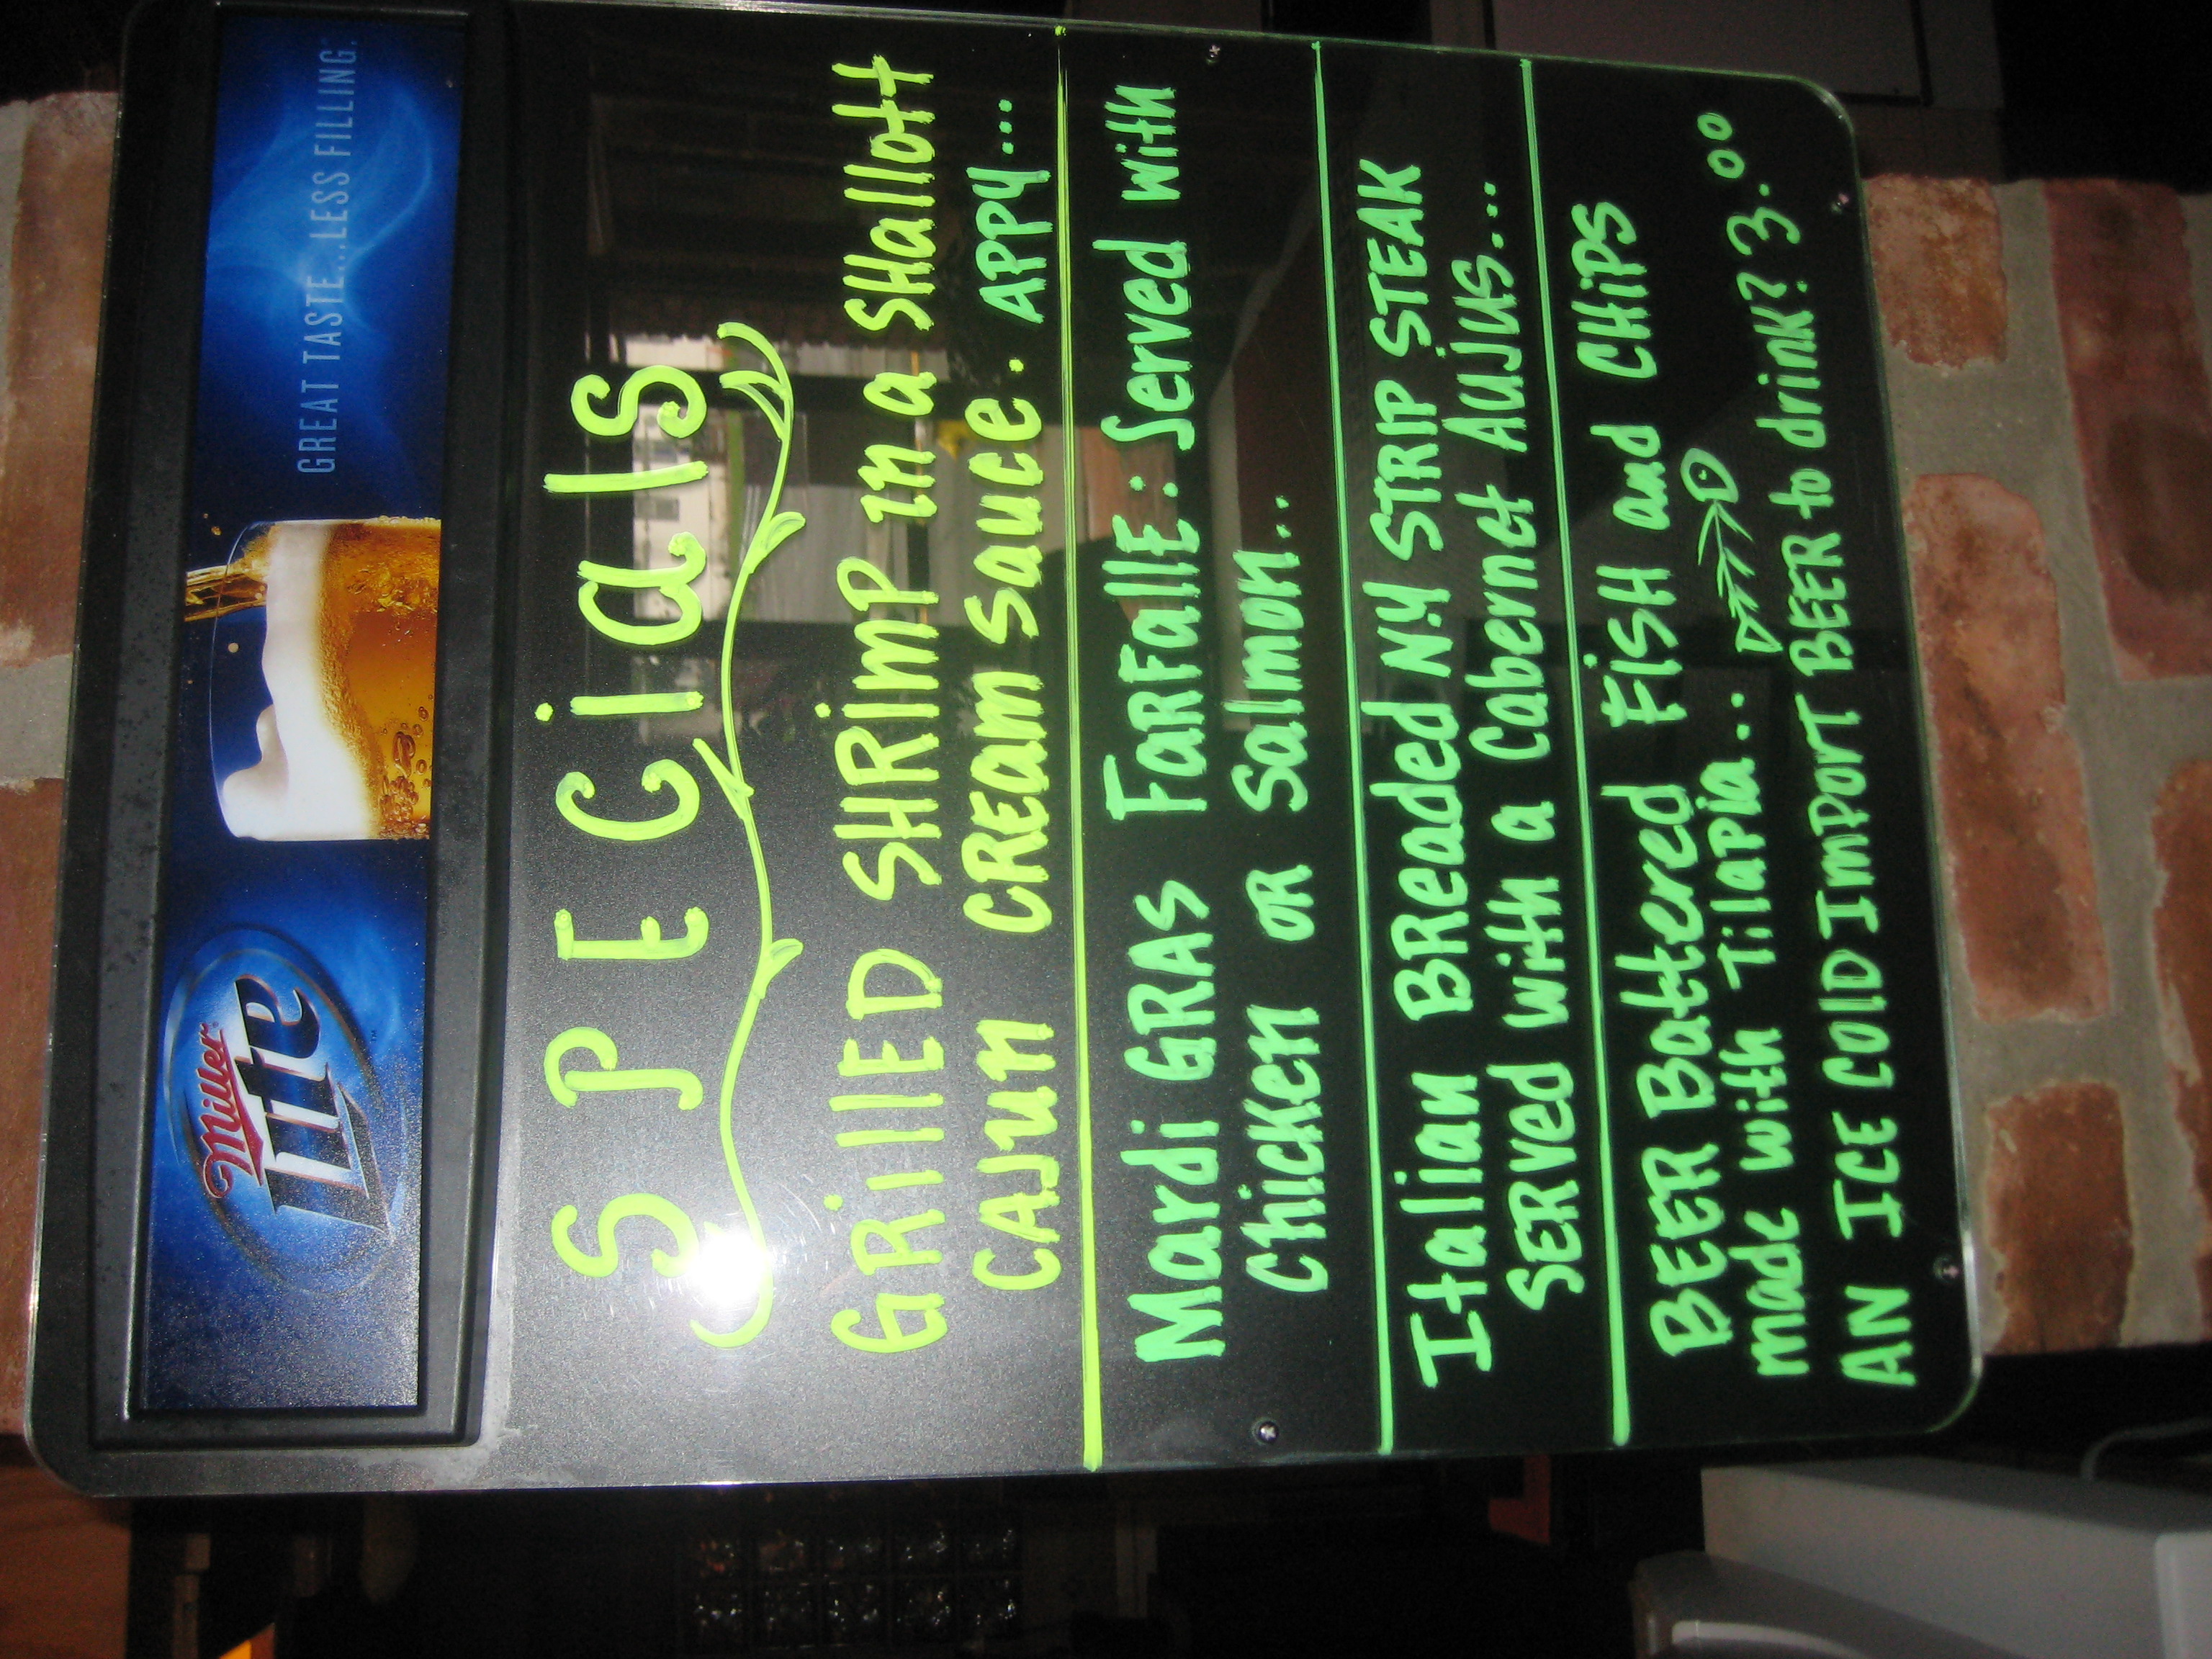 Miller
Lite
GREAT TASTE...LESS FILLING.
SPECials
GRillED SHRimP in a SHallott
CAJun CREam Sauce. APPY...
Mardi GRAS FaRFallE: Served with
Chicken OR Salmon..
Italian BReaded NY STRIP STEAK
SERVed with a Cabernet AuJus...
BEER Battered FiSH and CHiPS
made with Tilapia..
AN ICE COlD ImPORT BEER to drink? 3.00